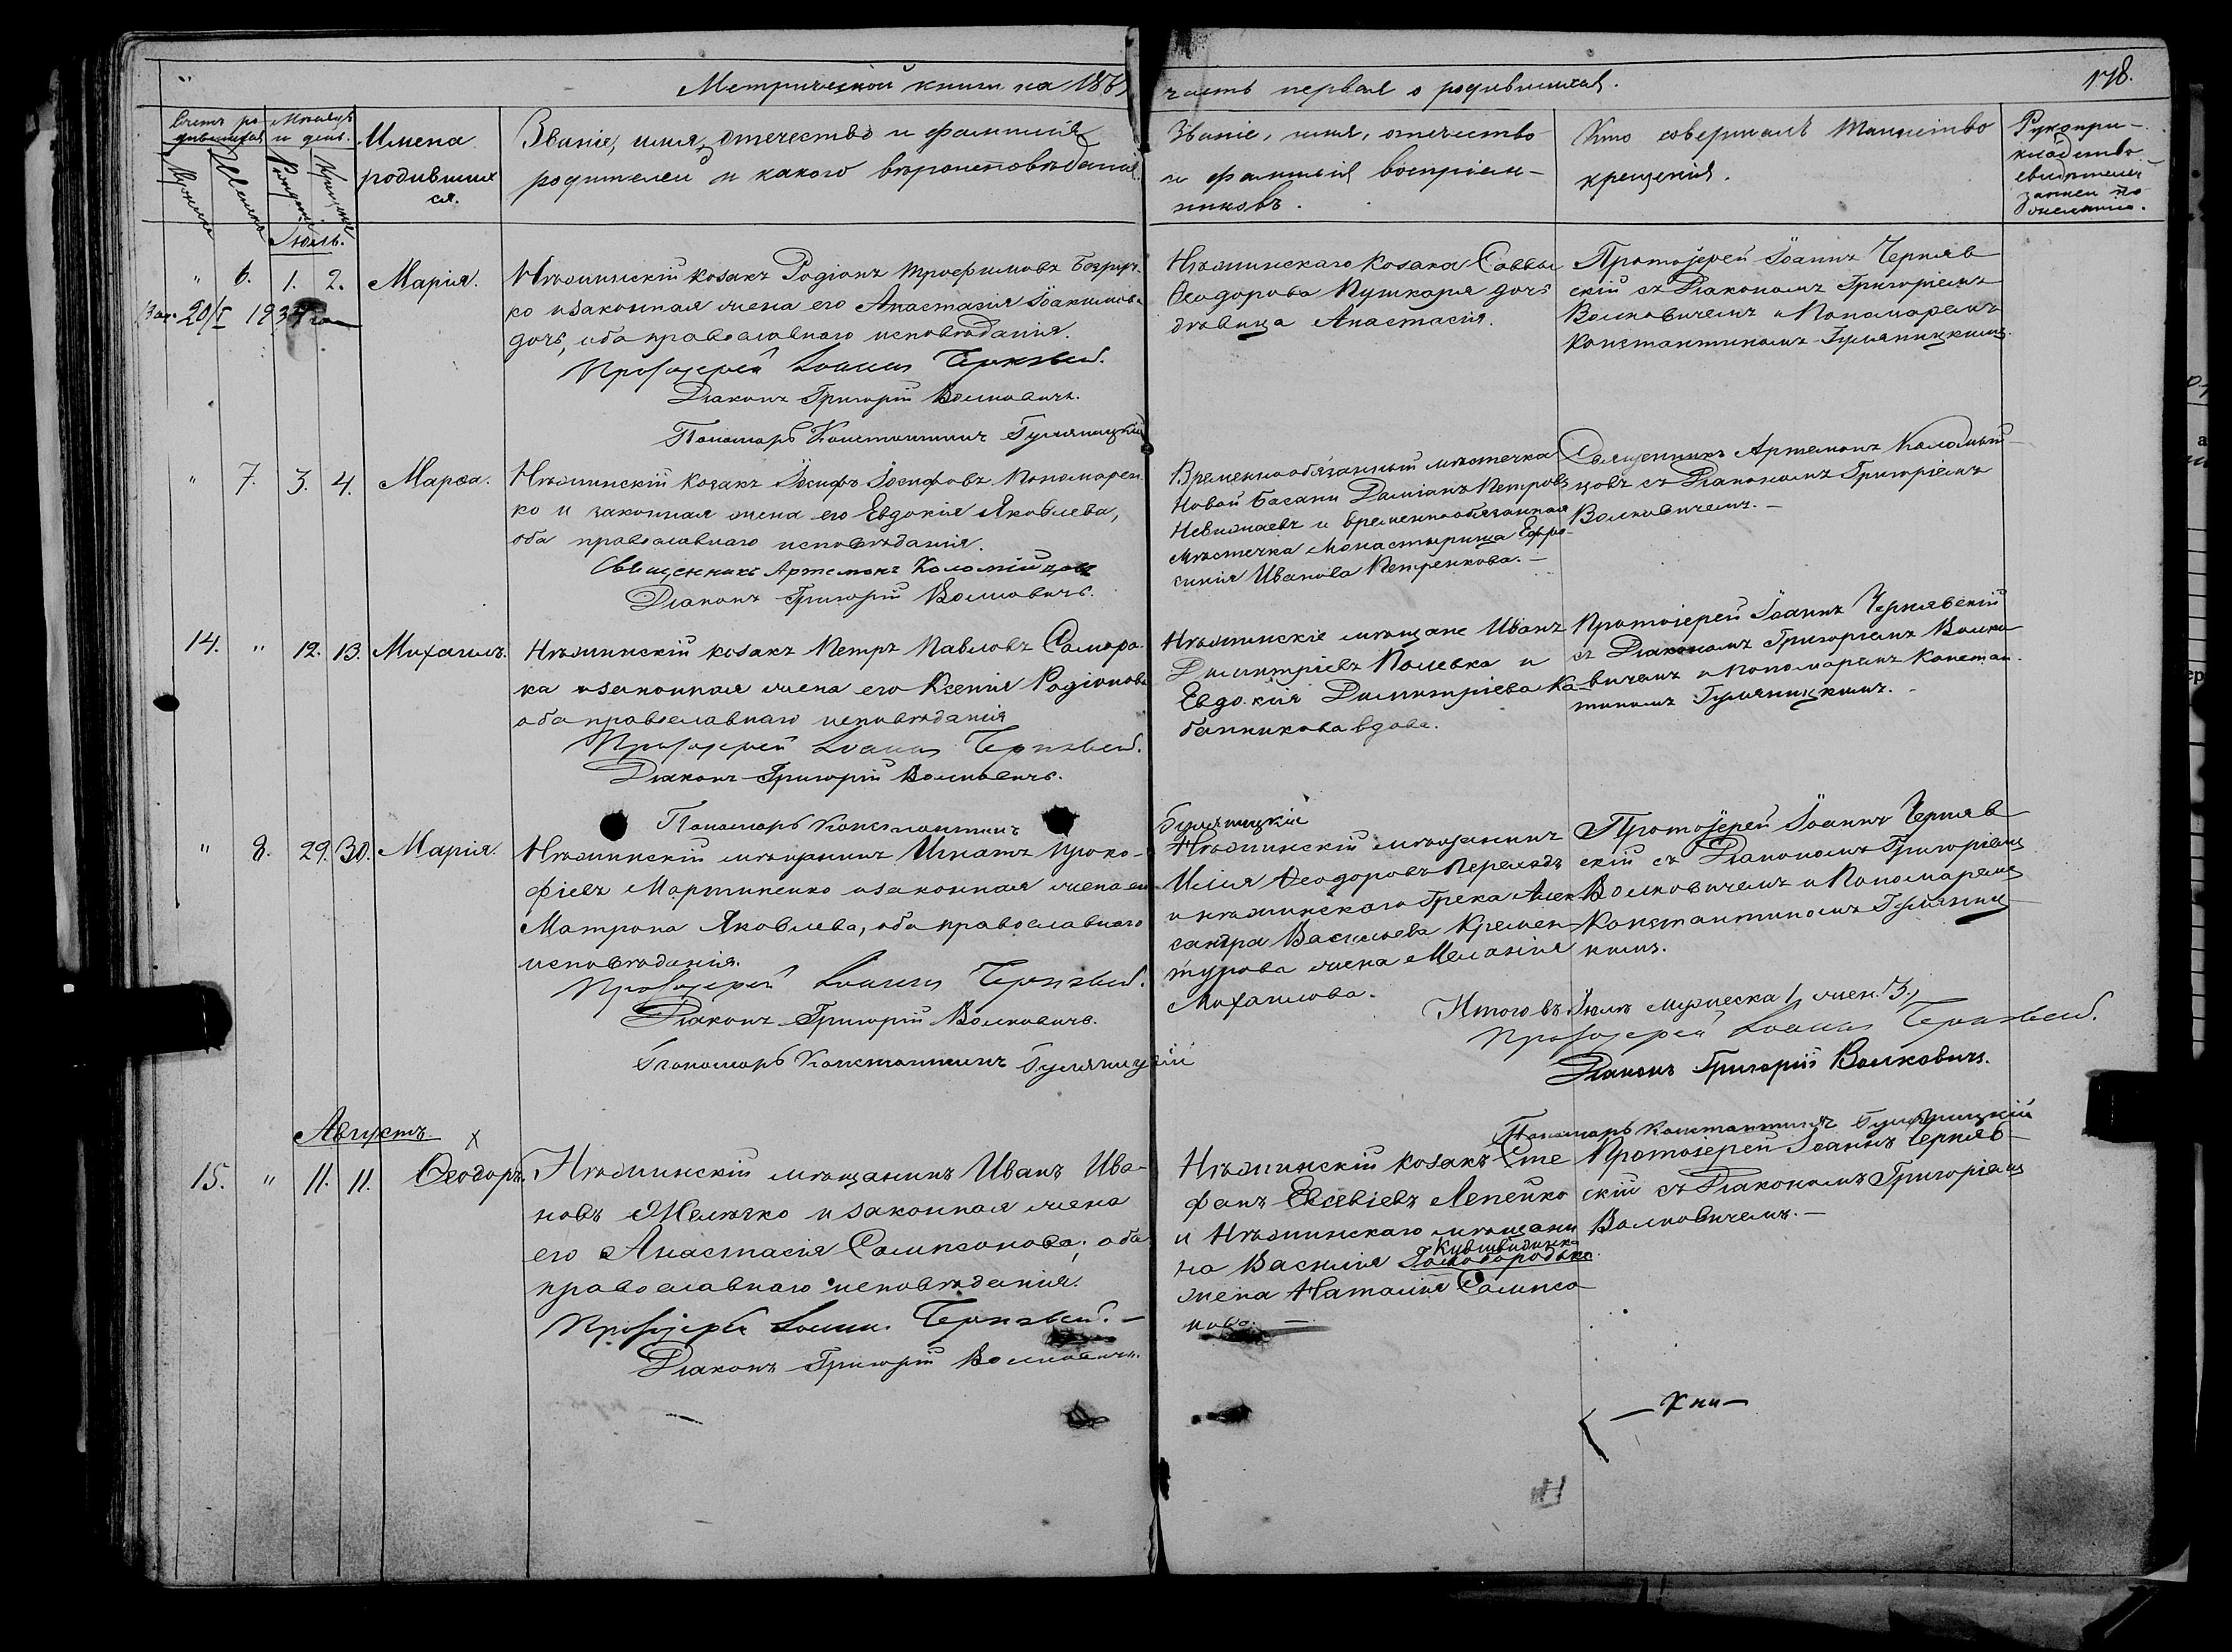 178.
Метрической книги на 186
часть первая о родившихся.
Счетъ ро-
дившихся
Мѣсяцъ
и день.
Мужеска
Женска
Рожденія
Крещенія
Имена
родивших
ся.
Званіе, имя, отечество и фамилія
родителей и какого вѣроисповѣданія.
Званіе, имя, отечество
и фамилія воспріем-
никовъ.
Кто совершалъ таинство
крещенія.
Рукопри-
кладство
свидѣтелей
записи по
желанію.
Іюль.
" 6. 1. 2. Марія.
20/I 193
Нѣжинскій козакъ Родіонъ Трофимовъ
ко и законная жена его Анастасія Іоакимова
дочь, оба православнаго исповѣданія.
Протоіерей Іоаннъ Чернявскій.
Діаконъ Григорій Волковичъ.
Пономарь Константинъ Гуляницкій
Нѣжинскаго козака Саввы
Ѳеодорова Пушкаря дочь
дѣвица Анастасія.
Протоіерей Іоаннъ Черняв
скій съ Діакономъ Григоріемъ
Волковичемъ и Пономаремъ
Константиномъ Гуляницкимъ.
" 7. 3. 4. Марѳа.
Нѣжинскій козакъ Іосифъ Іосифовъ Пономарен
ко и законная жена его Евдокія Яковлева,
оба православнаго исповѣданія.
Священникъ Артемонъ Коломійцовъ
Діаконъ Григорій Волковичъ.
Временнообязанный мѣстечка
Новой Басани Даміанъ Петровъ
и временнообязанная
мѣстечка Монастырища Евфро-
синія Иванова Петренкова. —
Священникъ Артемонъ Коломій
цовъ съ Діакономъ Григоріемъ
Волковичемъ. —
14. " 12. 13. Михаилъ.
Нѣжинскій козакъ Петръ Павловъ Самора
ка и законная жена его Ксенія Родіонова
оба православнаго исповѣданія
Протоіерей Іоаннъ Чернявскій.
Діаконъ Григорій Волковичъ.
Пономарь Константинъ
Гуляницкій
Нѣжинскіе мѣщане Иванъ
Димитріевъ Полевка и
Евдокія Димитріева Ка-
банникова вдова.
Протоіерей Іоаннъ Чернявскій
съ Діакономъ Григоріемъ Волко
вичемъ и Пономаремъ Констан
тиномъ Гуляницкимъ. -
" 8. 29. 30. Марія.
Нѣжинскій мѣщанинъ Игнатъ Проко-
фіевъ Мартиненко и законная жена его
Матрона Яковлева, оба православнаго
исповѣданія.
Протоіерей Іоаннъ Чернявскій.
Діаконъ Григорій Волковичъ.
Пономарь Константинъ Гуляницкій
Нѣжинскій мѣщанинъ
Илія Ѳеодоровъ
и нѣжинскаго Грека Алек
сандра Васильева Кремен
турова жена Меланія
Михаилова.
Протоіерей Іоаннъ Черняв
скій съ Діакономъ Григоріемъ
Волковичемъ и Пономаремъ
Константиномъ Гуляниц
кимъ.
Итого въ Іюлѣ мужеска 1, жен. 3,
Протоіерей Іоаннъ Чернявскій.
Діаконъ Григорій Волковичъ.
Пономарь Константинъ Гуляницкій
Августъ
х
15. " 11. 11. Ѳеодоръ.
Нѣжинскій мѣщанинъ Иванъ Ива-
новъ и законная жена
его Анастасія Сампсонова, оба
православнаго исповѣданія.
Протоіерей Іоаннъ Чернявскій. —
Діаконъ Григорій Волковичъ.
Нѣжинскій козакъ Сте
фанъ Евсевіевъ Лепейко
и Нѣжинскаго мѣщани
на Василія
жена Наталія Сампсо
нова. —
Протоіерей Іоаннъ Черняв-
скій съ Діакономъ Григоріемъ
Волковичемъ. —